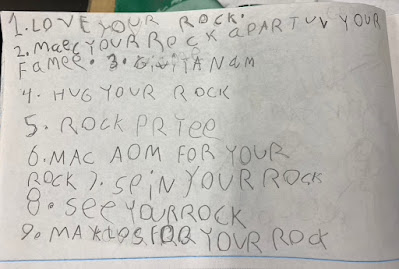 1. LOVE YOUR ROCK.
2. Maec YOUR ROCK aPARTUV YOUR
FaMee. 3. GiviTANaM
4. HUG YOUR ROCK
5. ROCK PRTee
6. MAC AOM FOR YOUR
ROCK 7. SPiN YOUR ROCK
8. See YOURROCK
9. MAK FOR YOUR ROCK